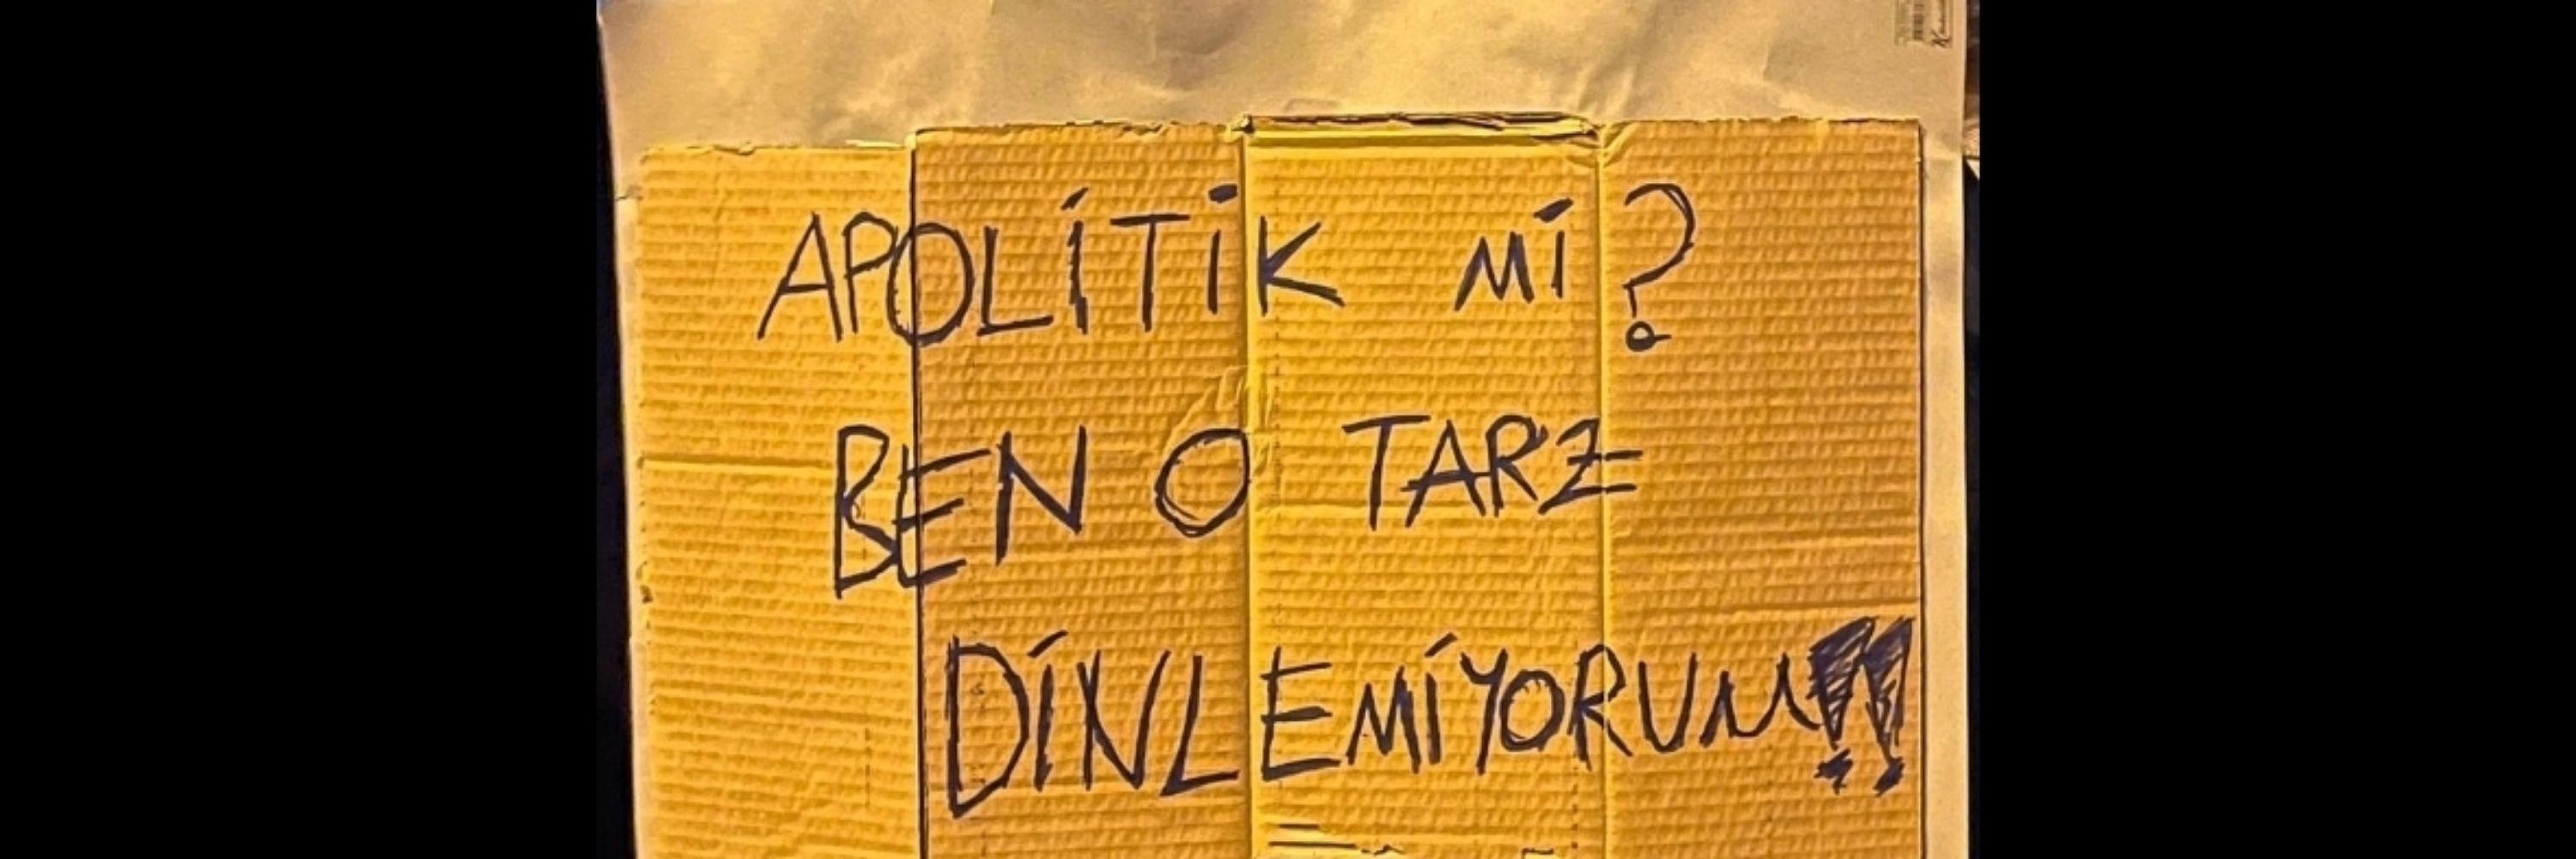 APOLİTİK Mİ?
BEN O TARZ
DİNLEMİYORUM!!